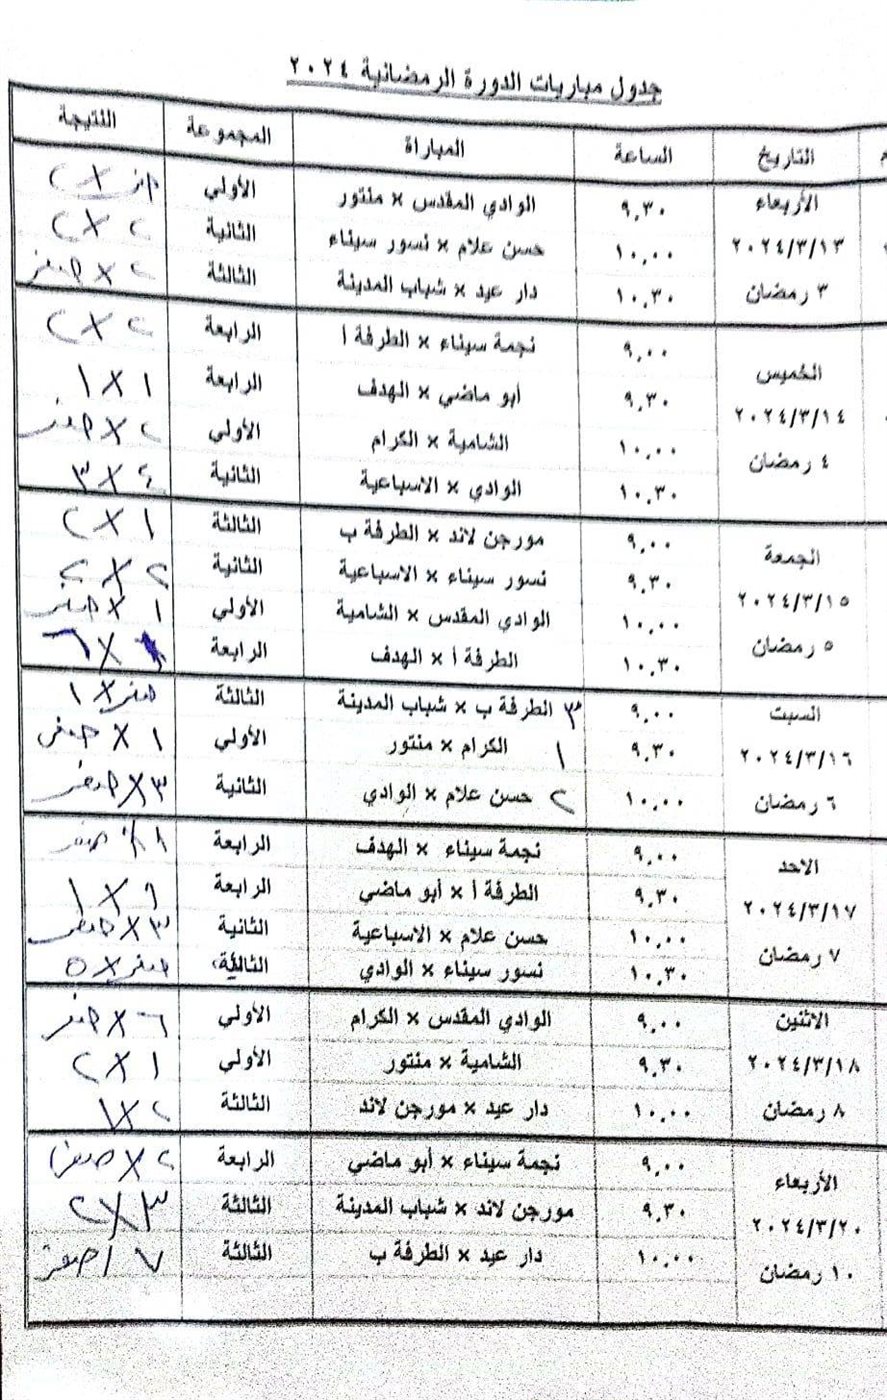 جدول مباريات الدورة الرمضانية ٢٠٢٤
م التاريخ الساعة المباراة المجموعة النتيجة
الأربعاء ٢٠٢٤/٣/١٣ ٣ رمضان
٩,٣٠ الوادي المقدس × منتور الأولي صفر × ٢
١٠,٠٠ حسن علام × نسور سيناء الثانية ٢ × ٢
١٠,٣٠ دار عيد × شباب المدينة الثالثة ٢ × صفر
الخميس ٢٠٢٤/٣/١٤ ٤ رمضان
٩,٠٠ نجمة سيناء × الطرفة أ الرابعة ٢ × ٢
٩,٣٠ أبو ماضي × الهدف الرابعة ١ × ١
١٠,٠٠ الشامية × الكرام الأولي ٢ × صفر
١٠,٣٠ الوادي × الاسباعية الثانية ٤ × ٣
الجمعة ٢٠٢٤/٣/١٥ ٥ رمضان
٩,٠٠ مورجن لاند × الطرفة ب الثالثة ١ × ٢
٩,٣٠ نسور سيناء × الاسباعية الثانية ٢ × ٢
١٠,٠٠ الوادي المقدس × الشامية الأولي ١ × صفر
١٠,٣٠ الطرفة أ × الهدف الرابعة × ٦
السبت ٢٠٢٤/٣/١٦ ٦ رمضان
٩,٠٠ ٣ الطرفة ب × شباب المدينة الثالثة صفر × ١
٩,٣٠ ١ الكرام × منتور الأولي ١ × صفر
١٠,٠٠ ٢ حسن علام × الوادي الثانية ٣ × صفر
الاحد ٢٠٢٤/٣/١٧ ٧ رمضان
٩,٠٠ نجمة سيناء × الهدف الرابعة صفر
٩,٣٠ الطرفة أ × أبو ماضي الرابعة × ١
١٠,٠٠ حسن علام × الاسباعية الثانية ٣ × صفر
١٠,٣٠ نسور سيناء × الوادي الثانية صفر × ٥
الاثنين ٢٠٢٤/٣/١٨ ٨ رمضان
٩,٠٠ الوادي المقدس × الكرام الأولي ٦ × صفر
٩,٣٠ الشامية × منتور الأولي ١ × ٢
١٠,٠٠ دار عيد × مورجن لاند الثالثة ٢ × ١
الأربعاء ٢٠٢٤/٣/٢٠ ١٠ رمضان
٩,٠٠ نجمة سيناء × أبو ماضي الرابعة ٢ × صفر
٩,٣٠ مورجن لاند × شباب المدينة الثالثة ٣ × ٢
١٠,٠٠ دار عيد × الطرفة ب الثالثة ٧ / صفر